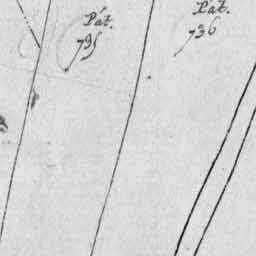 Pát.
735
Pat.
736